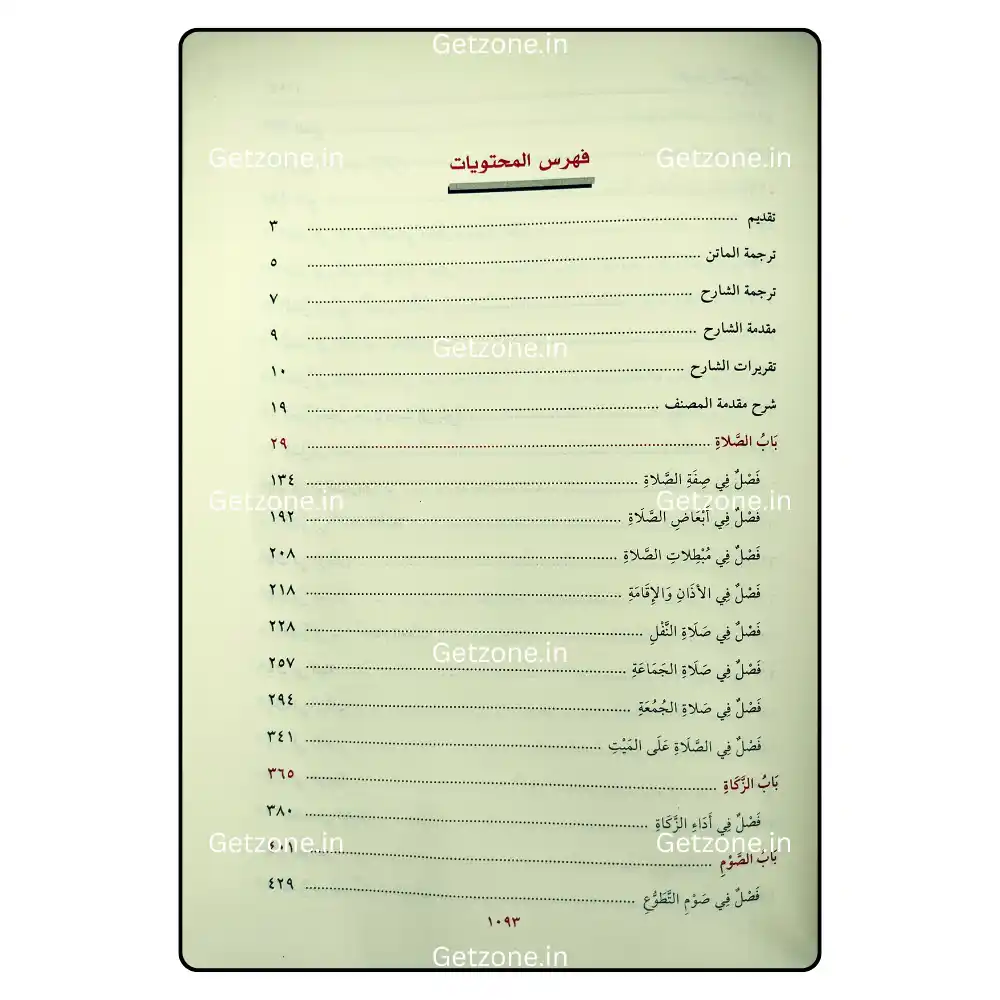 Getzone.in
Getzone.in Getzone.in
فهرس المحتويات
تقديم ٣
ترجمة الماتن ٥
ترجمة الشارح ٧
مقدمة الشارح ٩
Getzone.in
تقريرات الشارح ١٠
شرح مقدمة المصنف ١٩
بَابُ الصَّلاةِ ٢٩
فَصْلٌ فِي صِفَةِ الصَّلاةِ ١٣٤
Getzone.in Getzone.in
فَصْلٌ فِي أَبْعَاضِ الصَّلَاةِ ١٩٢
فَصْلٌ فِي مُبْطِلاتِ الصَّلاةِ ٢٠٨
فَصْلٌ فِي الأَذَانِ وَالإِقَامَةِ ٢١٨
فَصْلٌ فِي صَلَاةِ النَّفْلِ ٢٢٨
Getzone.in
فَصْلٌ فِي صَلَاةِ الجَمَاعَةِ ٢٥٧
فَصْلٌ فِي صَلاةِ الجُمُعَةِ ٢٩٤
فَصْلٌ فِي الصَّلَاةِ عَلَى المَيْتِ ٣٤١
بَابُ الزَّكَاةِ ٣٦٥
فَصْلٌ فِي أَدَاءِ الزَّكَاةِ ٣٨٠
Getzone.in Getzone.in
بَابُ الصَّوْمِ ٤٠١
فَصْلٌ فِي صَوْمِ التَّطَوُّعِ ٤٢٩
١٠٩٣
Getzone.in